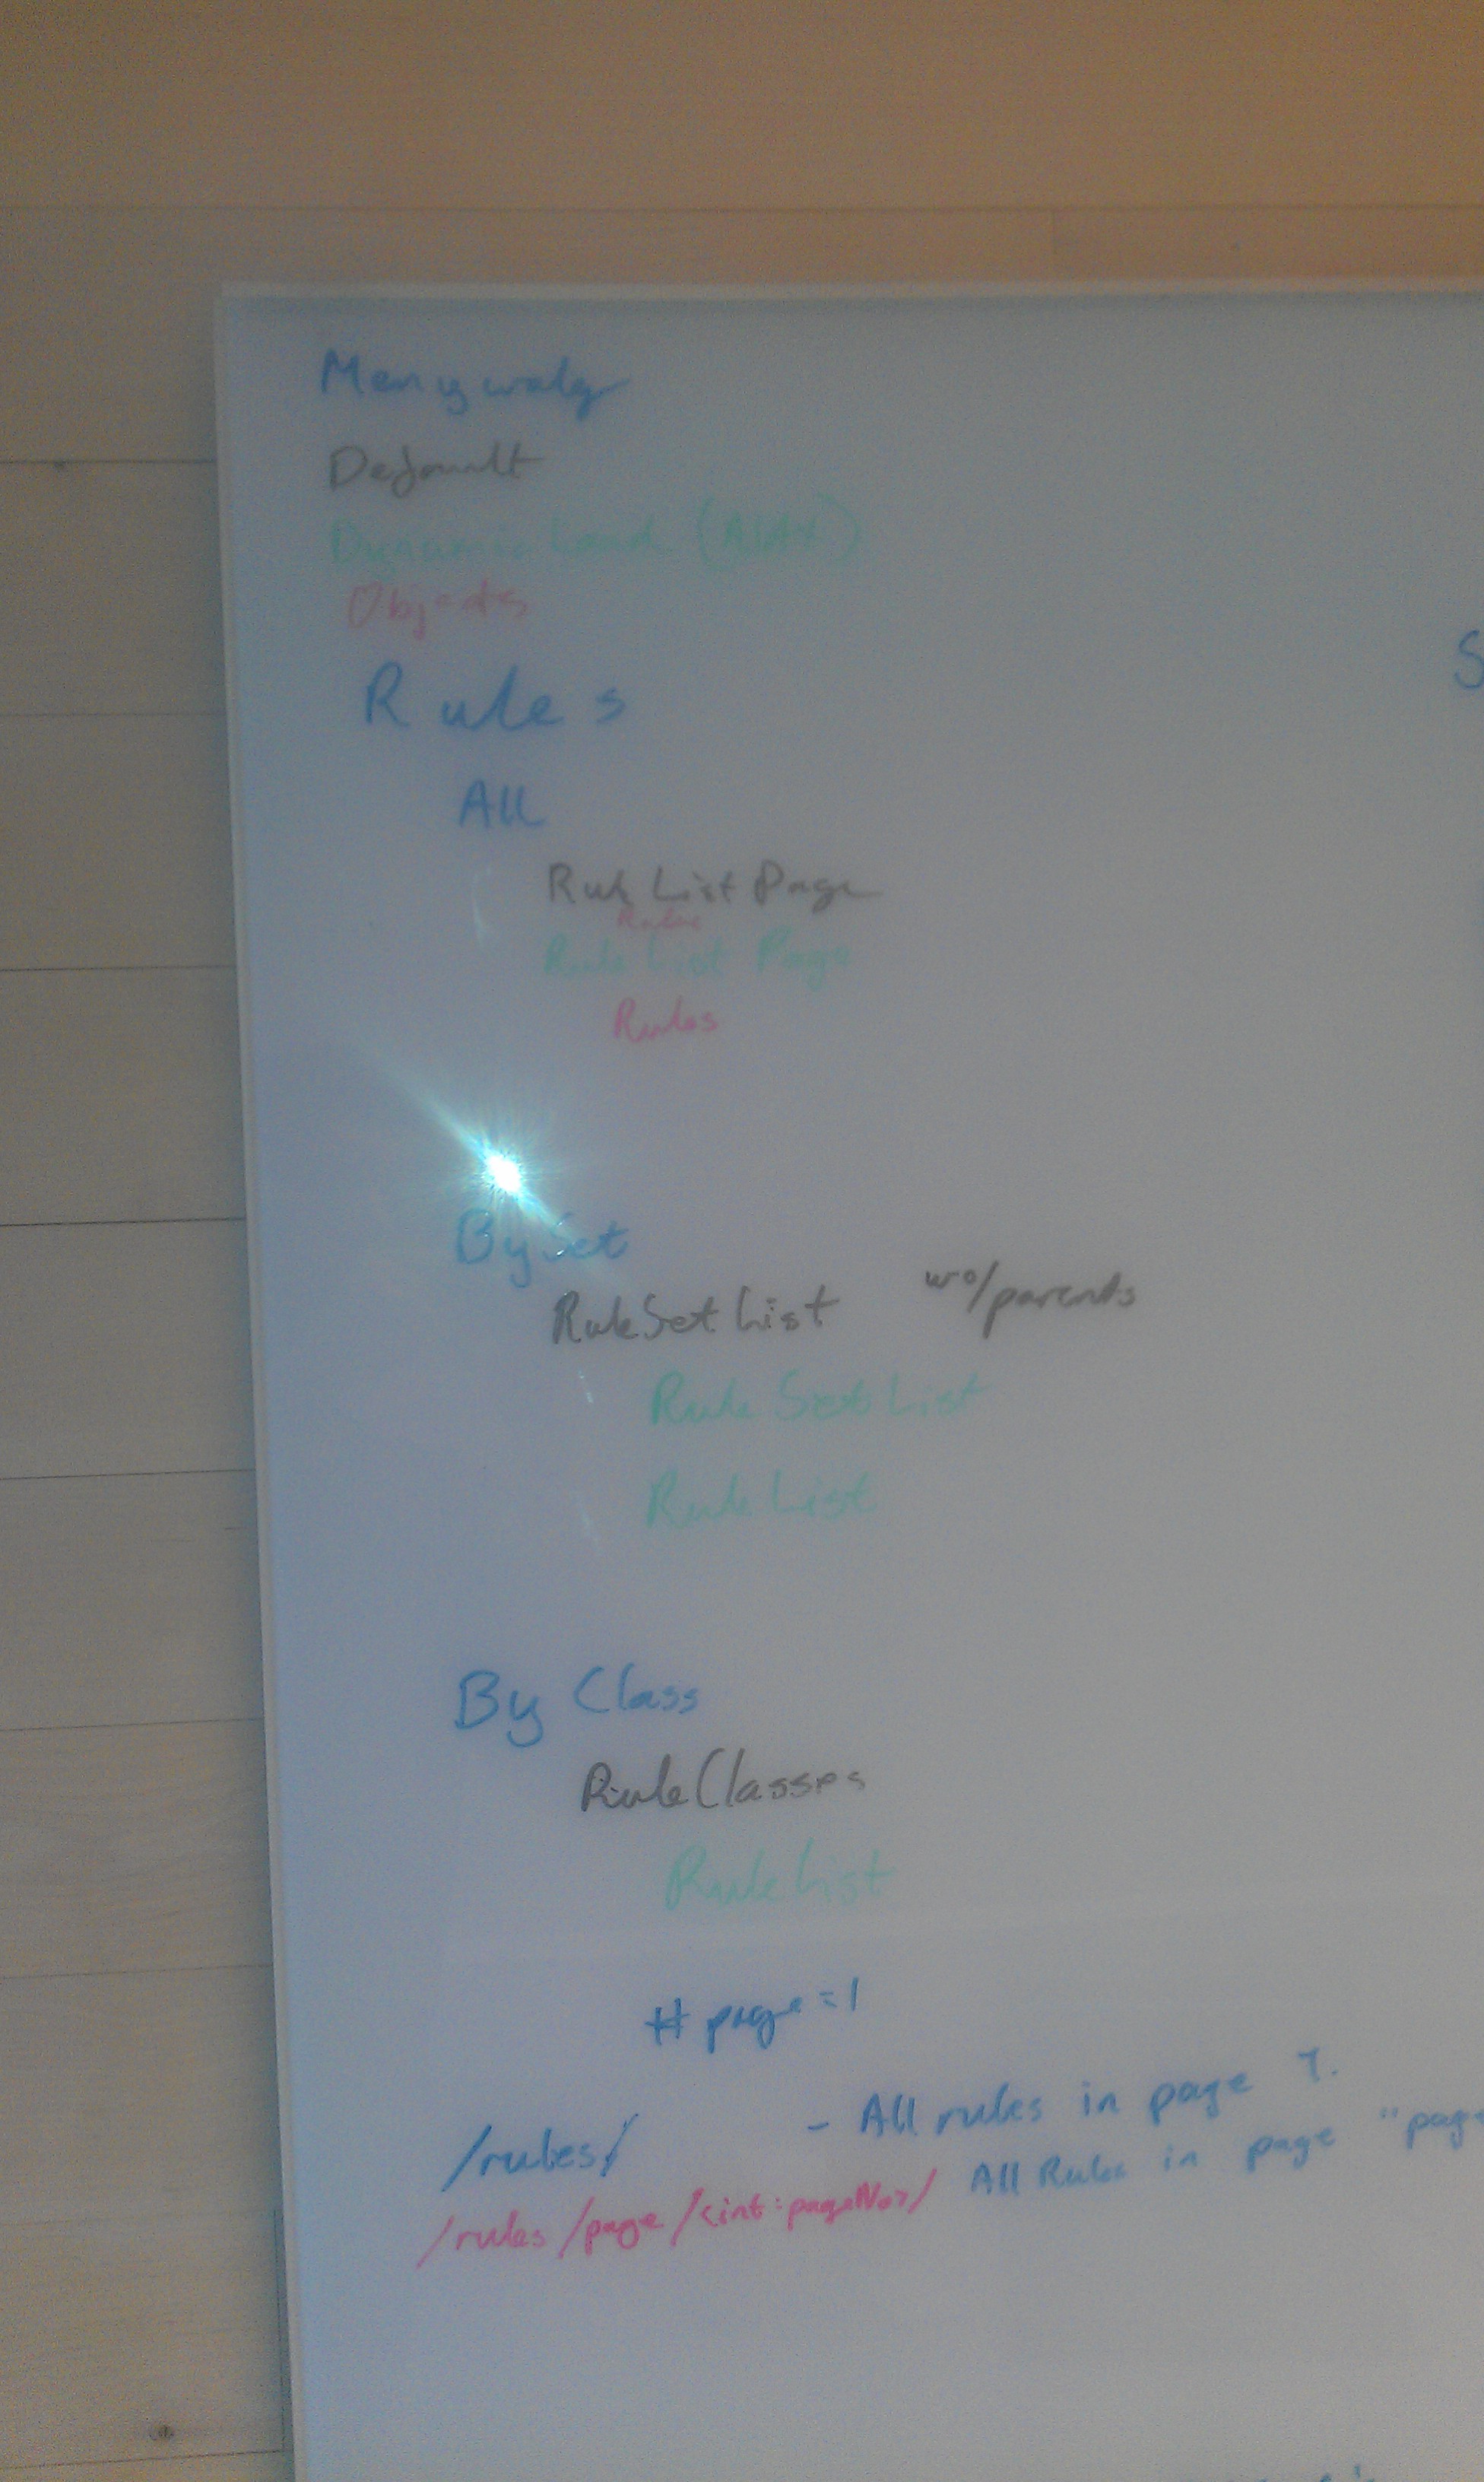 Menyvalg
Default
Dynamic Load (AJAX)
Objects
Rules
All
Rule List Page
Rules
Rule List Page
Rules
By Set
RuleSet List wo/parents
Rule Set List
Rule List
By Class
RuleClasses
RuleList
# page=1
/rules/ - All rules in page 1.
/rules/page/<int:pageNo>/ All Rules in page "page